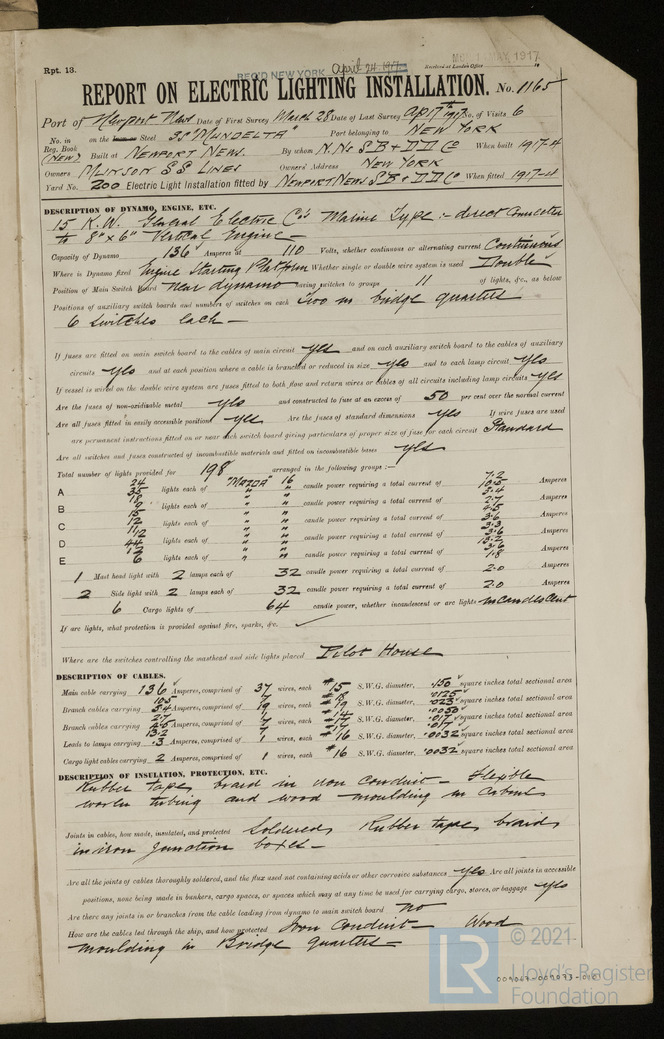 Rpt. 13.
REC'D NEW YORK April 24 1917
Received at London Office MAY 1917
REPORT ON ELECTRIC LIGHTING INSTALLATION. No. 1165
Port of Newport News Date of First Survey March 28 Date of Last Survey Ap 17th 1917 No. of Visits 6
No. in Reg. Book (New) on the Steel SS "MUNDELTA" Port belonging to NEW YORK
Built at NEWPORT NEWS. By whom N. Ns S B + D D Co When built 1917-4
Owners MUNSON S S LINES Owners' Address NEW YORK
Yard No. 200 Electric Light Installation fitted by NEWPORT NEWS S B + D D Co When fitted 1917-4
DESCRIPTION OF DYNAMO, ENGINE, ETC.
15 K.W. General Electric Co's Marine Type :- direct connected
to 8" x 6" Vertical Engine -
Capacity of Dynamo 136 Amperes at 110 Volts, whether continuous or alternating current Continuous
Where is Dynamo fixed Engine Starting Platform Whether single or double wire system is used Double
Position of Main Switch Board near dynamo having switches to groups 11 of lights, &c., as below
Positions of auxiliary switch boards and numbers of switches on each Two in bridge quarters
6 switches each -
If fuses are fitted on main switch board to the cables of main circuit yes and on each auxiliary switch board to the cables of auxiliary
circuits yes and at each position where a cable is branched or reduced in size yes and to each lamp circuit yes
If vessel is wired on the double wire system are fuses fitted to both flow and return wires or cables of all circuits including lamp circuits yes
Are the fuses of non-oxidizable metal yes and constructed to fuse at an excess of 50 per cent over the normal current
Are all fuses fitted in easily accessible positions yes Are the fuses of standard dimensions yes If wire fuses are used
are permanent instructions fitted on or near each switch board giving particulars of proper size of fuse for each circuit Standard
Are all switches and fuses constructed of incombustible materials and fitted on incombustible bases yes
Total number of lights provided for 198 arranged in the following groups :-
A 24 35 lights each of "MAZDA" 16 candle power requiring a total current of 7.2 10.5 Amperes
B 18 9 lights each of " " candle power requiring a total current of 5.4 2.7 Amperes
C 15 12 lights each of " " candle power requiring a total current of 4.5 3.6 Amperes
D 11 12 44 lights each of " " candle power requiring a total current of 3.3 3.6 13.2 Amperes
E 12 6 lights each of " " candle power requiring a total current of 3.6 1.8 Amperes
1 Mast head light with 2 lamps each of 32 candle power requiring a total current of 2.0 Amperes
2 Side light with 2 lamps each of 32 candle power requiring a total current of 2.0 Amperes
6 Cargo lights of 64 candle power, whether incandescent or arc lights incandescent
If arc lights, what protection is provided against fire, sparks, &c.
Where are the switches controlling the masthead and side lights placed Pilot House
DESCRIPTION OF CABLES.
Main cable carrying 136 Amperes, comprised of 37 wires, each #15 S.W.G. diameter, .150 square inches total sectional area
Branch cables carrying 10.5 5.4 Amperes, comprised of 7 19 wires, each #18 #19 S.W.G. diameter, .0125 .023 square inches total sectional area
Branch cables carrying 2.7 4.5 Amperes, comprised of wires, each S.W.G. diameter, square inches total sectional area
Leads to lamps carrying .3 Amperes, comprised of 1 wires, each #16 S.W.G. diameter, .0032 square inches total sectional area
Cargo light cables carrying 2 Amperes, comprised of 1 wires, each #16 S.W.G. diameter, .0032 square inches total sectional area
DESCRIPTION OF INSULATION, PROTECTION, ETC.
Rubber tape braid in iron conduit - Flexible
woven tubing and wood moulding in cabins
Joints in cables, how made, insulated, and protected Soldered, Rubber tape, braid
in iron junction boxes -
Are all the joints of cables thoroughly soldered, and the flux used not containing acids or other corrosive substances yes Are all joints in accessible
positions, none being made in bunkers, cargo spaces, or spaces which may at any time be used for carrying cargo, stores, or baggage yes
Are there any joints in or branches from the cable leading from dynamo to main switch board no
How are the cables led through the ship, and how protected Iron Conduit - Wood
moulding in Bridge quarters -
LR © 2021
Lloyd's Register
Foundation